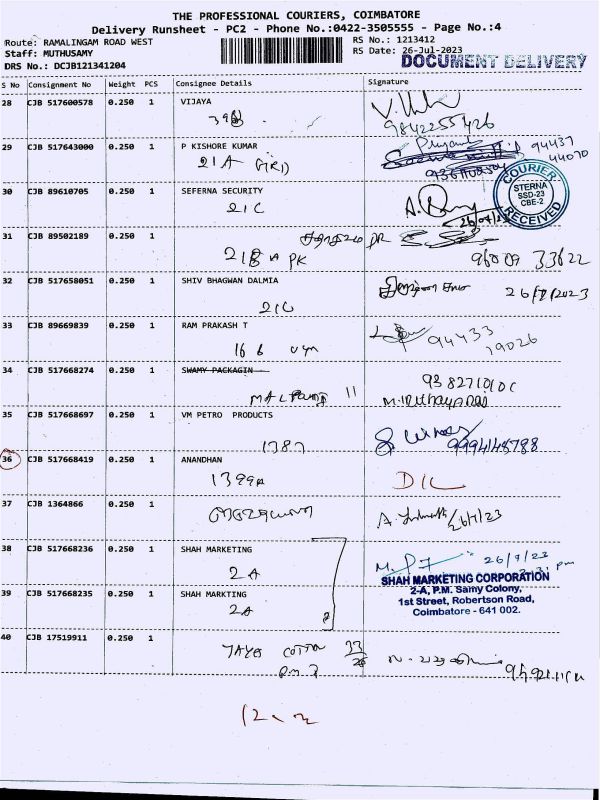 THE PROFESSIONAL COURIERS, COIMBATORE
Delivery Runsheet - PC2 - Phone No.:0422-3505555 - Page No.:4
Route: RAMALINGAM ROAD WEST
RS No.: 1213412
Staff: MUTHUSAMY
RS Date: 26-Jul-2023
DRS No.: DCJB121341204
DOCUMENT DELIVERY
S No Consignment No Weight PCS Consignee Details Signature
28 CJB 517600578 0.250 1 VIJAYA
9842255426
29 CJB 517643000 0.250 1 P KISHORE KUMAR
21A
94437
44070
30 CJB 89610705 0.250 1 SEFERNA SECURITY
21C
COURIER
STERNA
SSD-23
CBE-2
RECEIVED
31 CJB 89502189 0.250 1
218 A PK
96009 33622
32 CJB 517658051 0.250 1 SHIV BHAGWAN DALMIA
21C
26/7/2023
33 CJB 89669839 0.250 1 RAM PRAKASH T
16 6
94433
19026
34 CJB 517668274 0.250 1 SWAMY PACKAGIN
11
35 CJB 517668697 0.250 1 VM PETRO PRODUCTS
1387
9994148788
36 CJB 517668419 0.250 1 ANANDHAN
1399A
D/L
37 CJB 1364866 0.250 1
26/7/23
38 CJB 517668236 0.250 1 SHAH MARKETING
2A
26/7/23
pm
SHAH MARKETING CORPORATION
2-A, P.M. Samy Colony,
1st Street, Robertson Road,
Coimbatore - 641 002.
39 CJB 517668235 0.250 1 SHAH MARKTING
2A
40 CJB 17519911 0.250 1
JAYA COTTON 33